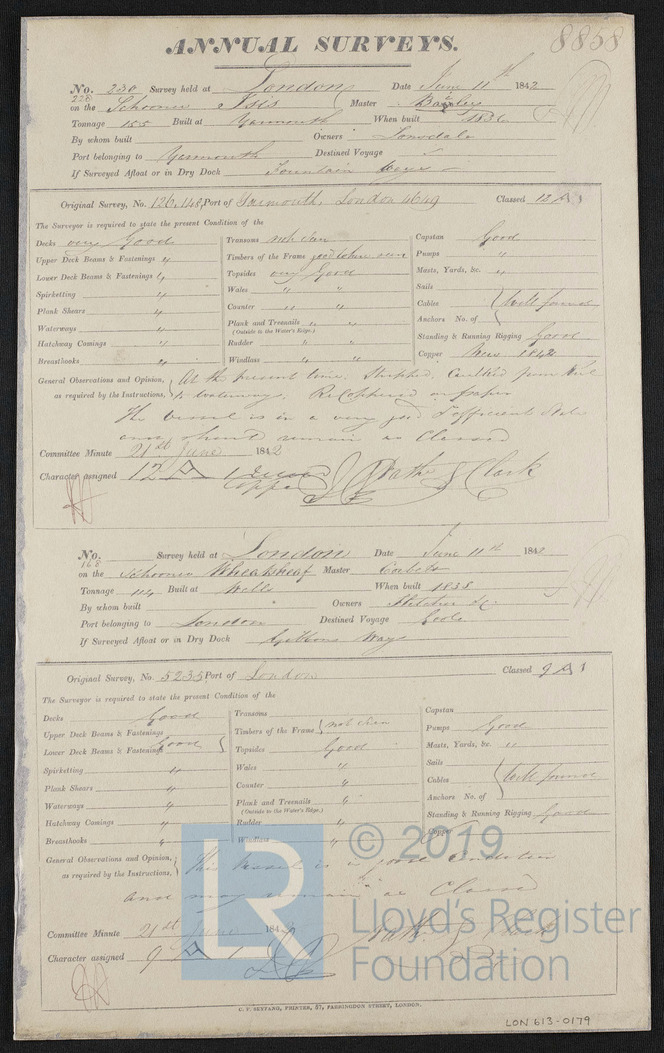 8858
ANNUAL SURVEYS.
No. 230 Survey held at London Date June 11th 1842
228
on the Schooner Isis Master Bayley
Tonnage 155 Built at Yarmouth When built 1836
By whom built Owners Lonsdale
Port belonging to Yarmouth Destined Voyage
If Surveyed Afloat or in Dry Dock Fountain Ways
Original Survey, No. 126,148, Port of Yarmouth, London 4649 Classed 12 A 1
The Surveyor is required to state the present Condition of the
Decks very Good
Upper Deck Beams & Fastenings "
Lower Deck Beams & Fastenings "
Spirketting "
Plank Shears "
Waterways "
Hatchway Comings "
Breasthooks "
Transoms not seen
Timbers of the Frame good when seen
Topsides very Good
Wales " "
Counter " "
Plank and Treenails " "
(Outside to the Water's Edge.)
Rudder " "
Windlass " "
Capstan Good
Pumps "
Masts, Yards, &c. "
Sails
Cables Well found
Anchors No. of
Standing & Running Rigging Good
Copper New 1842
General Observations and Opinion, At the present time. Stripped, Caulked from Keel
as required by the Instructions, to waterway. ReCoppered on paper
The vessel is in a very good & efficient State
and should remain as Classed
Committee Minute 21st June 1842
Character assigned 12 A 1 Coppd Nath. J. Clark
No. Survey held at London Date June 11th 1842
168
on the Schooner Wheatsheaf Master Corbett
Tonnage 114 Built at Wells When built 1838
By whom built Owners Fletcher &c.
Port belonging to London Destined Voyage Coals
If Surveyed Afloat or in Dry Dock Gibbons Ways
Original Survey, No. 5235 Port of London Classed 9 A 1
The Surveyor is required to state the present Condition of the
Decks Good
Upper Deck Beams & Fastenings
Lower Deck Beams & Fastenings Good
Spirketting "
Plank Shears "
Waterways "
Hatchway Comings "
Breasthooks "
Transoms
Timbers of the Frame not seen
Topsides Good
Wales "
Counter "
Plank and Treenails "
(Outside to the Water's Edge.)
Rudder "
Windlass "
Capstan
Pumps Good
Masts, Yards, &c. "
Sails
Cables Well found
Anchors No. of
Standing & Running Rigging Good
Copper
General Observations and Opinion, This vessel is in good Condition
as required by the Instructions,
and may remain as Classed
Committee Minute 21st June 184
Character assigned 9 A 1 Nath. J. Clark
© 2019
LR
Lloyd's Register
Foundation
C. F. SEYFANG, PRINTER, 57, FARRINGDON STREET, LONDON.
LON 613-0179